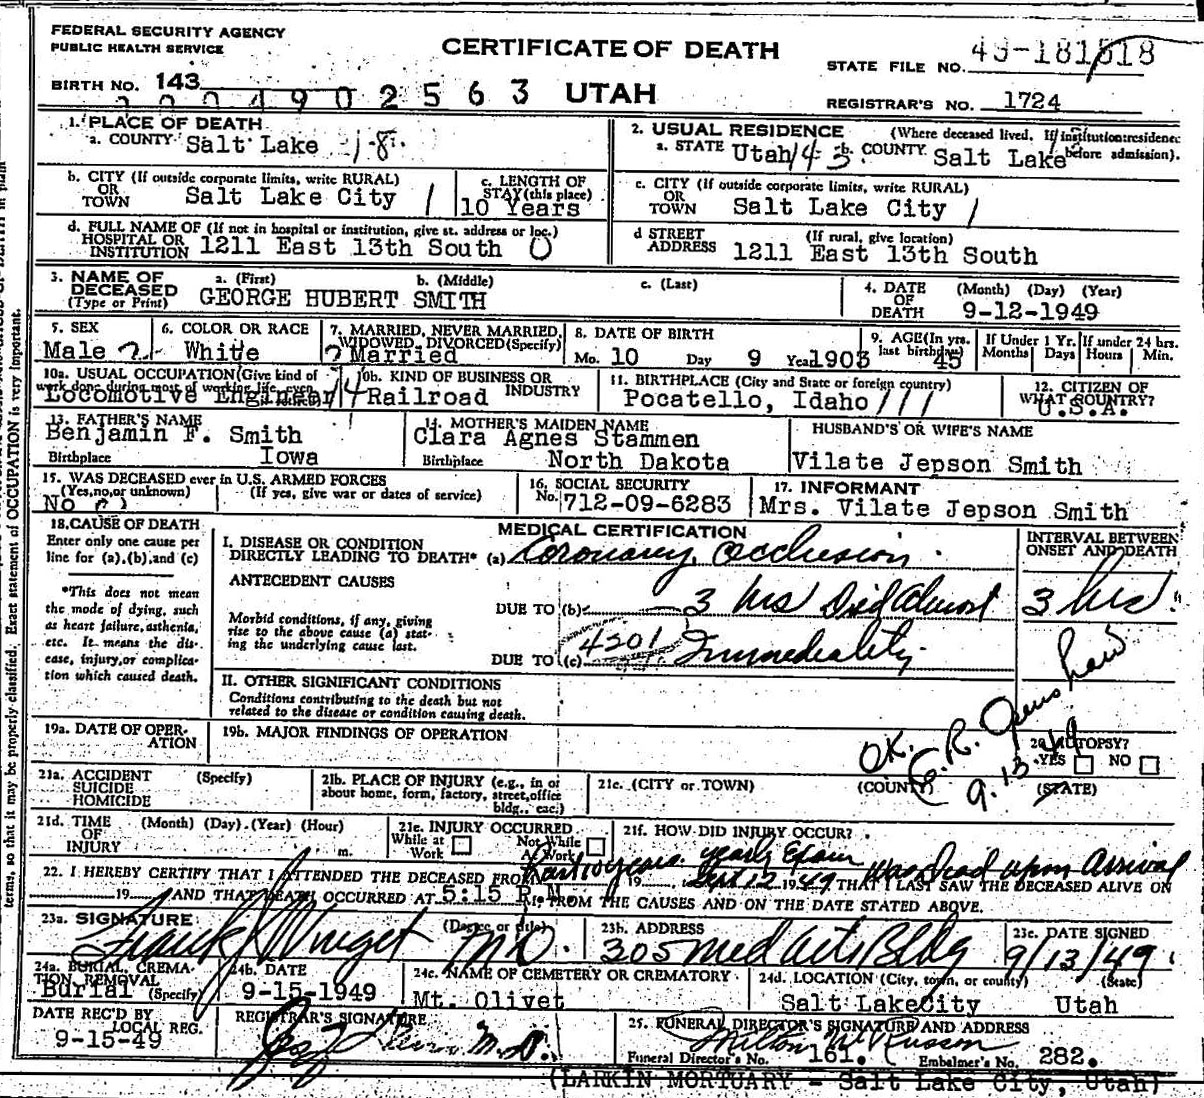 FEDERAL SECURITY AGENCY
PUBLIC HEALTH SERVICE
CERTIFICATE OF DEATH
STATE FILE NO. 49-181518
BIRTH NO. 143
4902563 UTAH
REGISTRAR'S NO. 1724
1. PLACE OF DEATH
a. COUNTY Salt Lake 18
2. USUAL RESIDENCE (Where deceased lived. If institution: residence before admission).
a. STATE Utah 143 b. COUNTY Salt Lake
b. CITY (If outside corporate limits, write RURAL)
OR
TOWN Salt Lake City 1
c. LENGTH OF STAY (this place)
10 Years
c. CITY (If outside corporate limits, write RURAL)
OR
TOWN Salt Lake City 1
d. FULL NAME OF (If not in hospital or institution, give st. address or loc.)
HOSPITAL OR
INSTITUTION 1211 East 13th South 0
d STREET (If rural, give location)
ADDRESS 1211 East 13th South
3. NAME OF DECEASED (Type or Print) a. (First) b. (Middle) c. (Last)
GEORGE HUBERT SMITH
4. DATE OF DEATH (Month) (Day) (Year)
9-12-1949
5. SEX
Male
6. COLOR OR RACE
White
7. MARRIED, NEVER MARRIED, WIDOWED, DIVORCED (Specify)
Married
8. DATE OF BIRTH
Mo. 10 Day 9 Year 1903
9. AGE (In yrs. last birthday) 45
If Under 1 Yr. Months Days
If under 24 hrs. Hours Min.
10a. USUAL OCCUPATION (Give kind of work done during most of working life, even if retired)
Locomotive Engineer
10b. KIND OF BUSINESS OR INDUSTRY
Railroad
11. BIRTHPLACE (City and State or foreign country)
Pocatello, Idaho
12. CITIZEN OF WHAT COUNTRY?
U.S.A.
13. FATHER'S NAME
Benjamin F. Smith
Birthplace Iowa
14. MOTHER'S MAIDEN NAME
Clara Agnes Stammen
Birthplace North Dakota
HUSBAND'S OR WIFE'S NAME
Vilate Jepson Smith
15. WAS DECEASED ever in U.S. ARMED FORCES
(Yes, no, or unknown) (If yes, give war or dates of service)
No
16. SOCIAL SECURITY
No. 712-09-6283
17. INFORMANT
Mrs. Vilate Jepson Smith
18. CAUSE OF DEATH
Enter only one cause per line for (a), (b), and (c)
*This does not mean the mode of dying, such as heart failure, asthenia, etc. It means the disease, injury, or complication which caused death.
MEDICAL CERTIFICATION
INTERVAL BETWEEN ONSET AND DEATH
I. DISEASE OR CONDITION
DIRECTLY LEADING TO DEATH* (a) Coronary Occlusion
ANTECEDENT CAUSES
DUE TO (b) 3 hrs Died Almost 3 hrs.
Morbid conditions, if any, giving rise to the above cause (a) stating the underlying cause last.
DUE TO (c) 4201 Immediately
II. OTHER SIGNIFICANT CONDITIONS
Conditions contributing to the death but not related to the disease or condition causing death.
19a. DATE OF OPERATION
19b. MAJOR FINDINGS OF OPERATION
OK. R. Openshaw 9.13.49
20. AUTOPSY?
YES NO
21a. ACCIDENT (Specify)
SUICIDE
HOMICIDE
21b. PLACE OF INJURY (e.g., in or about home, form, factory, street, office bldg., etc.)
21c. (CITY or TOWN) (COUNTY) (STATE)
21d. TIME OF INJURY (Month) (Day) (Year) (Hour) m.
21e. INJURY OCCURRED
While at Work Not While At Work
21f. HOW DID INJURY OCCUR?
last 10 years yearly Exam Was Dead upon Arrival
22. I HEREBY CERTIFY THAT I ATTENDED THE DECEASED FROM 19 Sept 12 1949 THAT I LAST SAW THE DECEASED ALIVE ON
19 AND THAT DEATH OCCURRED AT 5:15 P.M. FROM THE CAUSES AND ON THE DATE STATED ABOVE.
23a. SIGNATURE (Degree or title)
Frank MD.
23b. ADDRESS
305 Med Arts Bldg
23c. DATE SIGNED
9/13/49
24a. BURIAL, CREMATION, REMOVAL (Specify)
Burial
24b. DATE
9-15-1949
24c. NAME OF CEMETERY OR CREMATORY
Mt. Olivet
24d. LOCATION (City, town, or county) (State)
Salt Lake City Utah
DATE REC'D BY LOCAL REG.
9-15-49
REGISTRAR'S SIGNATURE
M.D.
25. FUNERAL DIRECTOR'S SIGNATURE AND ADDRESS
Milton Russon
Funeral Director's No. 161. Embalmer's No. 282.
(LARKIN MORTUARY - Salt Lake City, Utah)
terms, so that it may be properly classified. Exact statement of OCCUPATION is very important.